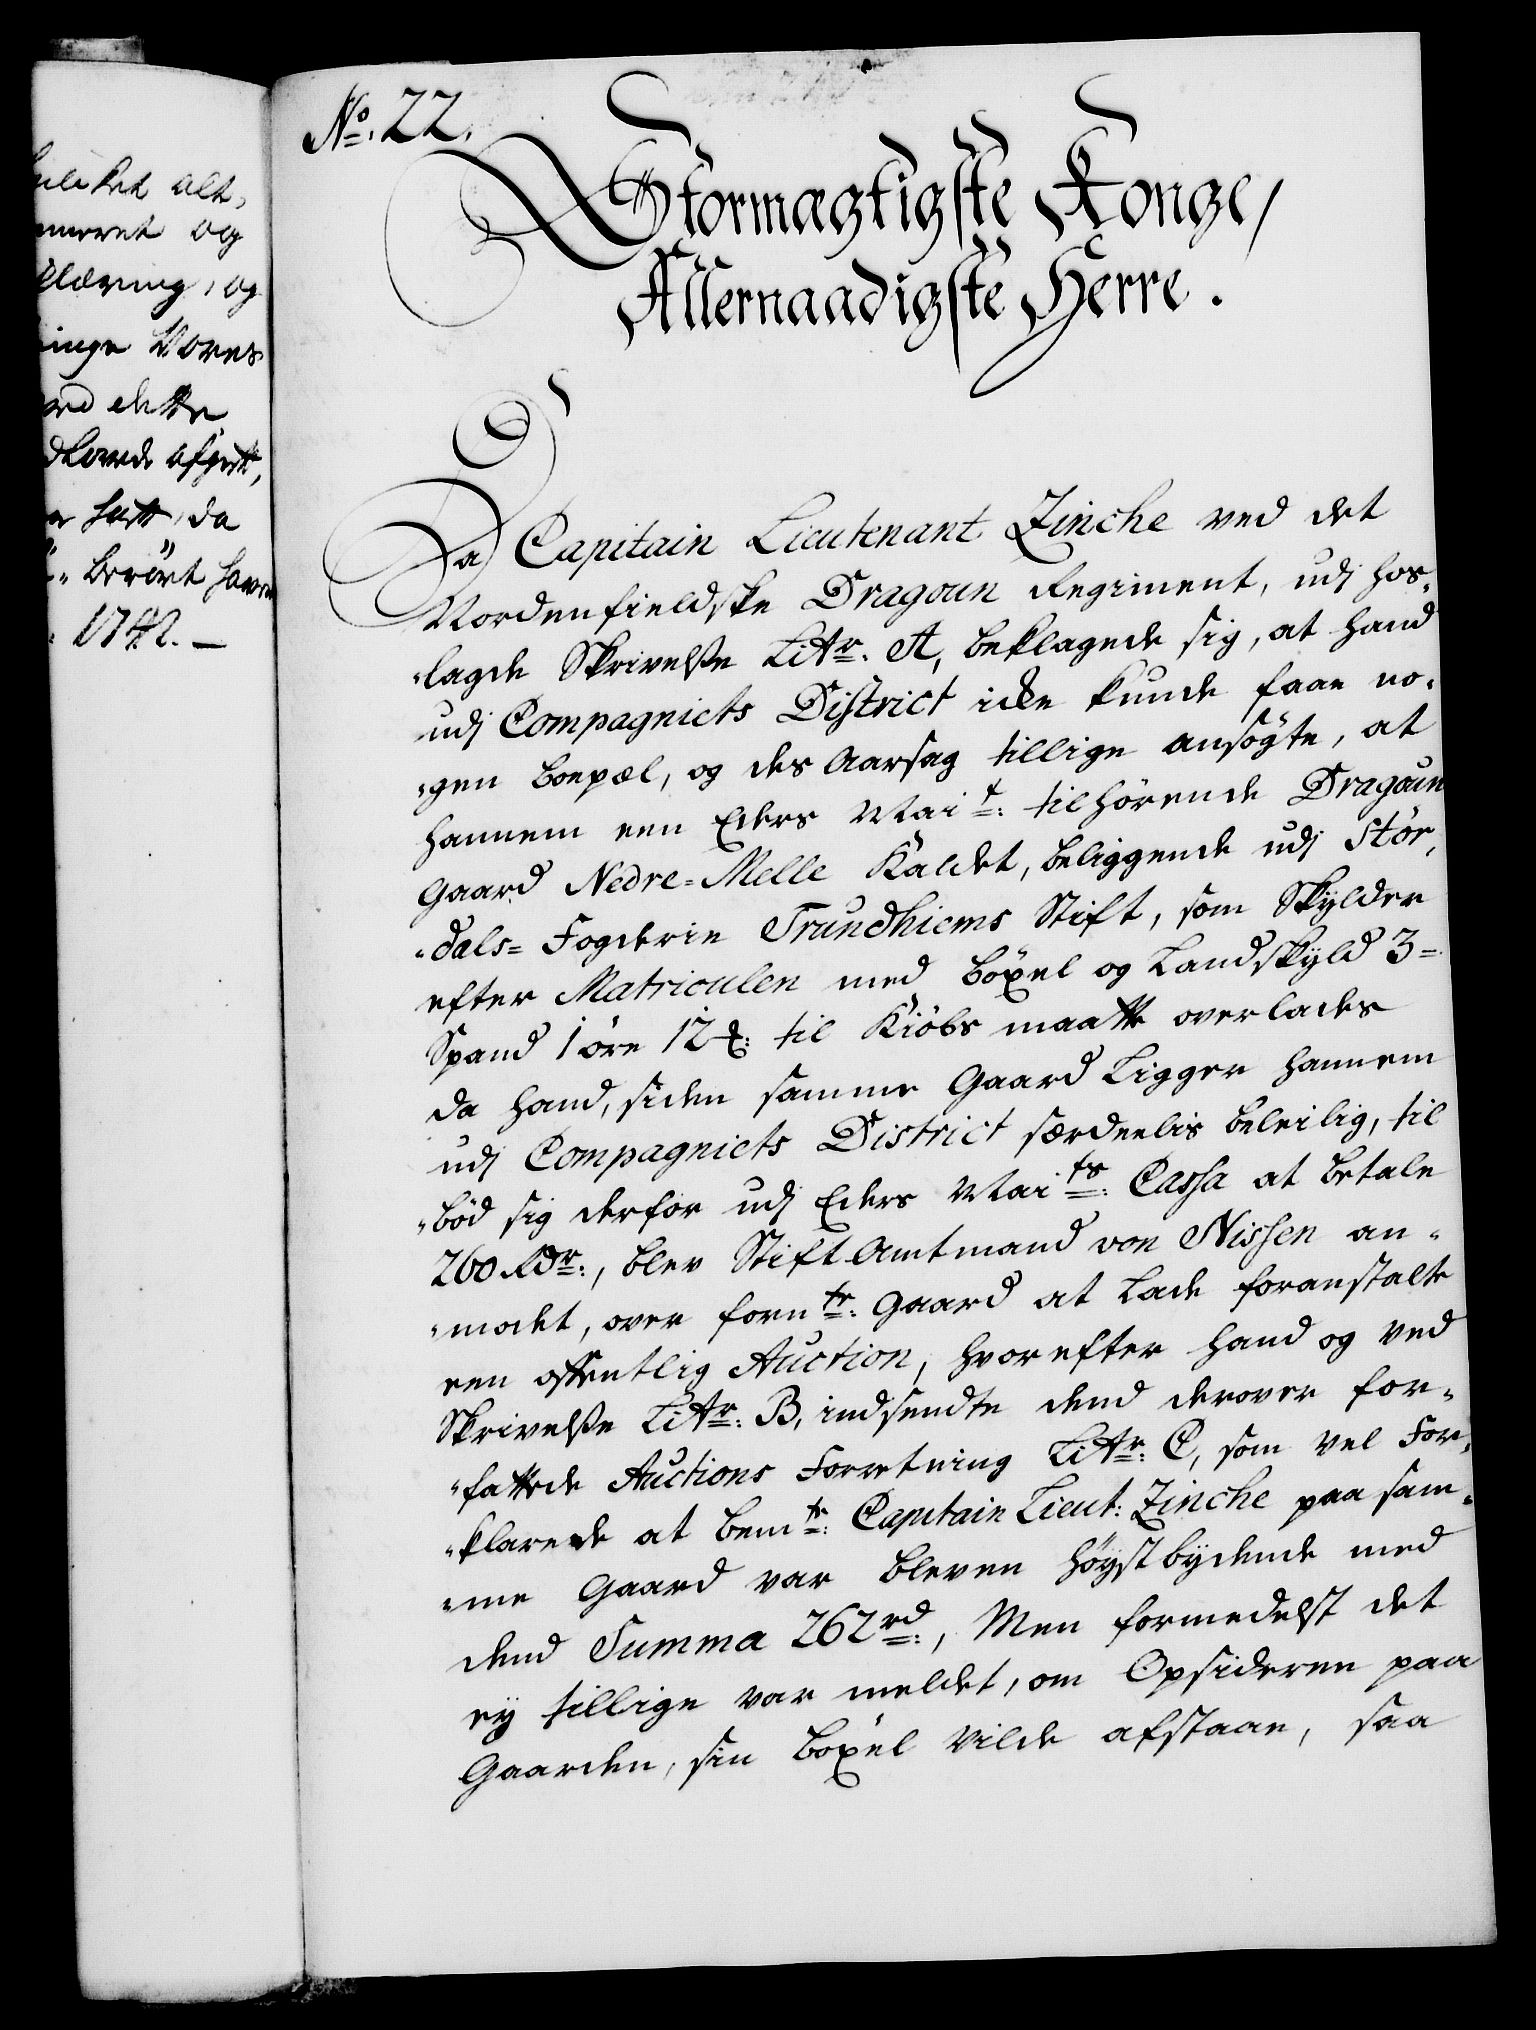 No. 22.
Stormægtigste Konge,
Allernaadigste Herre.
Da Capitain Lieutenant Zinche ved det
Nordenfieldske Dragoun Regiment, udj hos-
lagde Skrivelse Littr. A, beklagede sig, at hand
udj Compagniets District icke kunde faae no-
gen boepæl, og des Aarsag tillige ansögte, at
hannem een Eders Mait: tilhörende Dragoun
Gaard Nedre-Melle kaldet, beliggende udj Stör-
dals-Fogderie Trundhiems Stift, som skylder
efter Matriculen med böxel og Landskyld 3-
Spand 1 öre 12 til Kiöbs maatte overlades
da hand, siden samme Gaard ligger hannem
udj Compagniets District særdeelis beleilig, til
böd sig derfor udj Eders Maits: Cassa at betale
260 Rdr:, blev Stift Amtmand von Nissen an-
modet, over fornte: Gaard at lade foranstalte
een offentlig Auction, hvorefter hand og ved
Skrivelse Littr: B, indsendte dend derover for-
fattede Auctions Forretning Littr: C, som vel For-
klarede at bemte: Capitain Lieut: Zinche paa sam-
me Gaard var bleven höystbydende med
dend Summa 262 rd:, Men formedelst det
ey tillige var meldet, om Opsideren paa
Gaarden, sin böxel vilde afstaae, saa
alt,
og
og
Vores
dette
da
berört
1742.